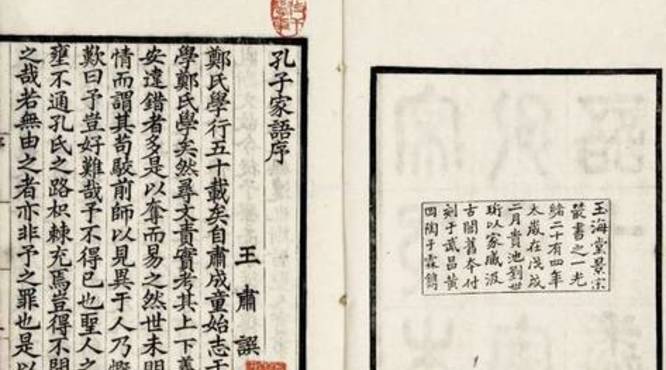 玉海堂景宋
叢書之一光
緒二十有四年
太歲在戊戌
二月貴池劉世
珩以家臧汲
古閣舊本付
刻于武昌黃
岡陶子霖鐫
孔子家語序
王肅譔
鄭氏學行五十載矣自肅成童始志于
學鄭氏學矣然尋文責實考其上下義
安違錯者多是以奪而易之然世未明
情而謂其苟駮前師以見異于人乃慨
歎曰予豈好難哉予不得已也聖人之
壅不通孔氏之路枳棘充焉豈得不開
之哉若無由之者亦非予之罪也是以